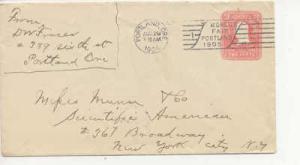 From
# 789 sixth st
Portland Ore
PORTLAND, ORE.
1904
WORLD'S
FAIR
PORTLAND
1905
TWO CENTS
Messrs Munn & Co
Scientific American
# 361 Broadway.
New York City N.Y.